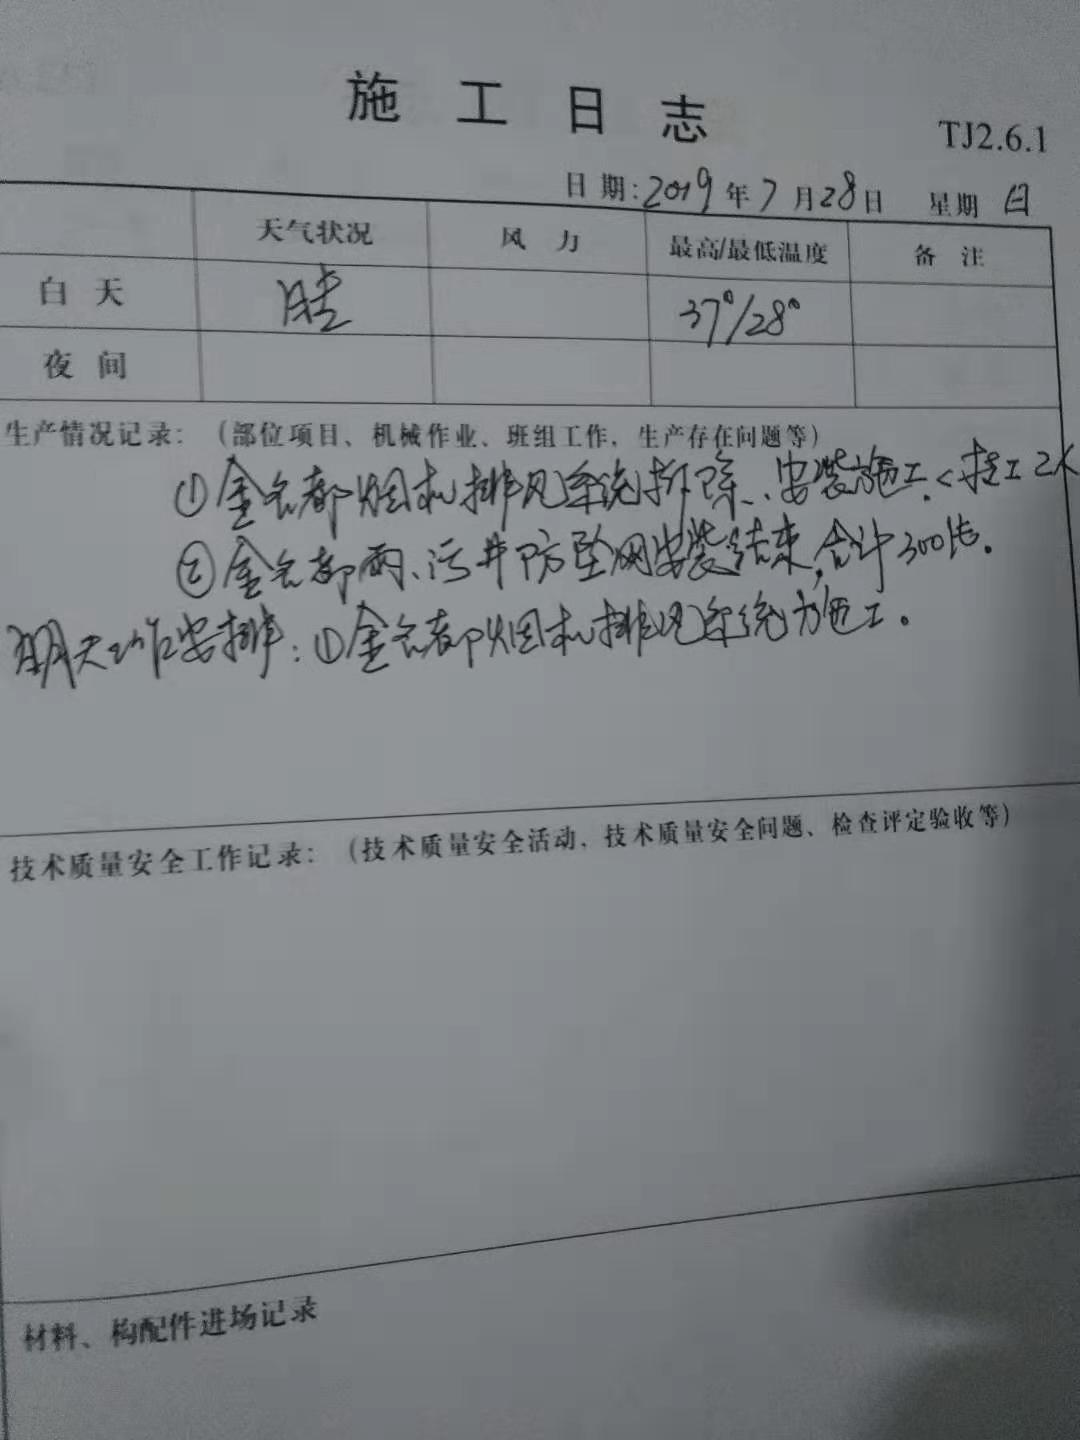 施工日志
TJ2.6.1
日期:2019年7月28日 星期日
天气状况 风力 最高/最低温度 备注
白天 晴 37°/28°
夜间
生产情况记录:(部位项目、机械作业、班组工作,生产存在问题等)
①金名都烟机排风系统拆除、安装施工.<技工2人
②金名都雨、污井防坠网安装结束,合计300个.
明天工作安排:①金名都烟机排风系统施工。
技术质量安全工作记录:(技术质量安全活动,技术质量安全问题、检查评定验收等)
材料、构配件进场记录